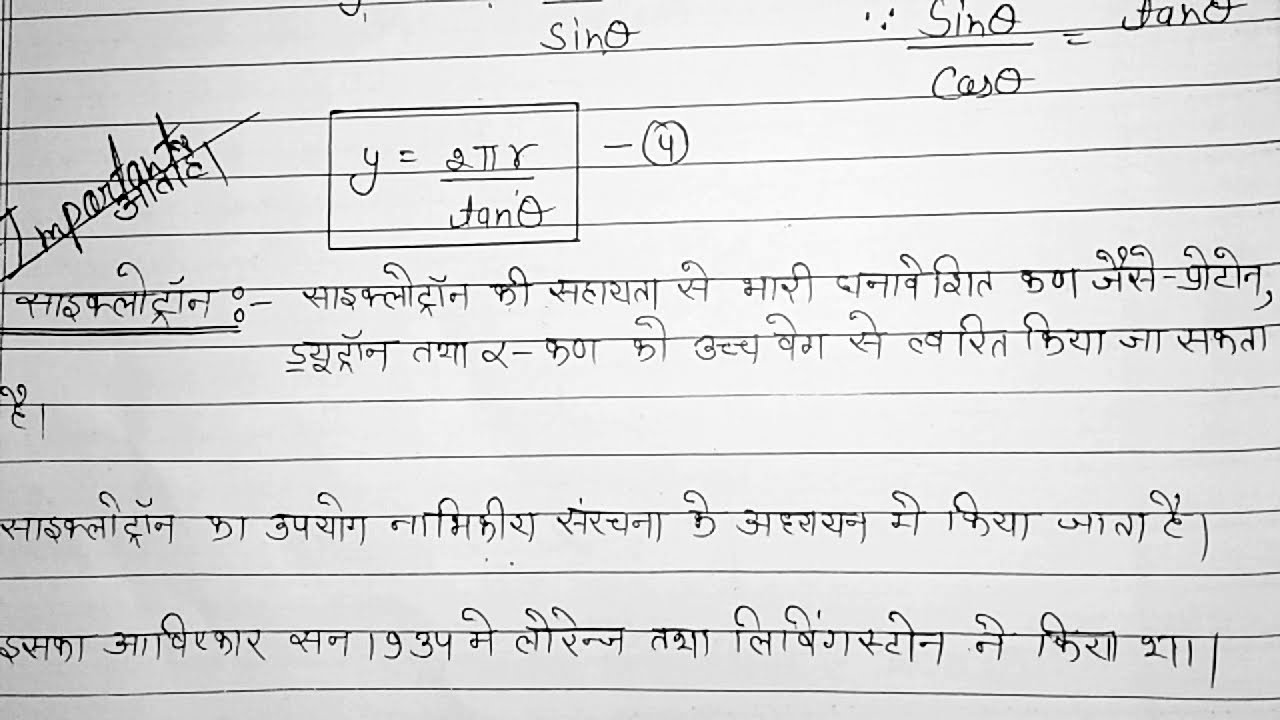 sinθ
∵ Sinθ/Cosθ = tanθ
Important
आता है।
y = 2πr/tanθ - (4)
साइक्लोट्रॉन :- साइक्लोट्रॉन की सहायता से भारी धनावेशित कण जैसे-प्रोटोन,
ड्यूट्रॉन तथा α-कण को उच्च वेग से त्वरित किया जा सकता
है।
साइक्लोट्रॉन का उपयोग नाभिकीय संरचना के अध्ययन मे किया जाता है।
इसका आविष्कार सन 1934 मे लौरेन्ज तथा लिविंगस्टोन ने किया था।